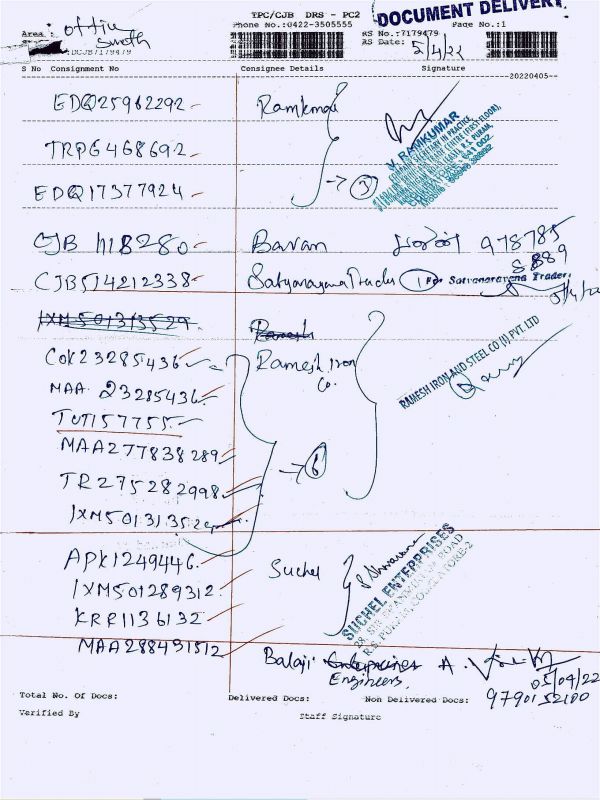 TPC/CJB DRS - PC2
DOCUMENT DELIVERY
Phone No.:0422-3505555
Page No.:1
Area :
office
South
RS No.:7179479
RS Date:
5/4/22
DCJB7179479
S No Consignment No Consignee Details Signature
20220405
EDQ25962292 Ramkmar
TRP6468692
V. RAMKUMAR
EDQ17377924 → 3
CJB 1118280 Bavan 978785
5889
CJB514212338 Satyanarayana Traders 1 For Satyanarayana Traders
5/4/22
IXM501313529 Ramesh
COK23285436 Ramesh Iron
Co.
RAMESH IRON AND STEEL CO (I) PVT. LTD
MAA 23285436
TUT157755
MAA277838289
TR275282998 → 6
IXM50131352
APK1249446 Suchel
SUCHEL ENTERPRISES
R.S. PURAM, COIMBATORE-2
IXM501289312
KRR1136132
MAA288491512
Balaji Enterprises
Engineers,
05/04/22
9790152100
Total No. Of Docs: Delivered Docs: Non Delivered Docs:
Verified By Staff Signature